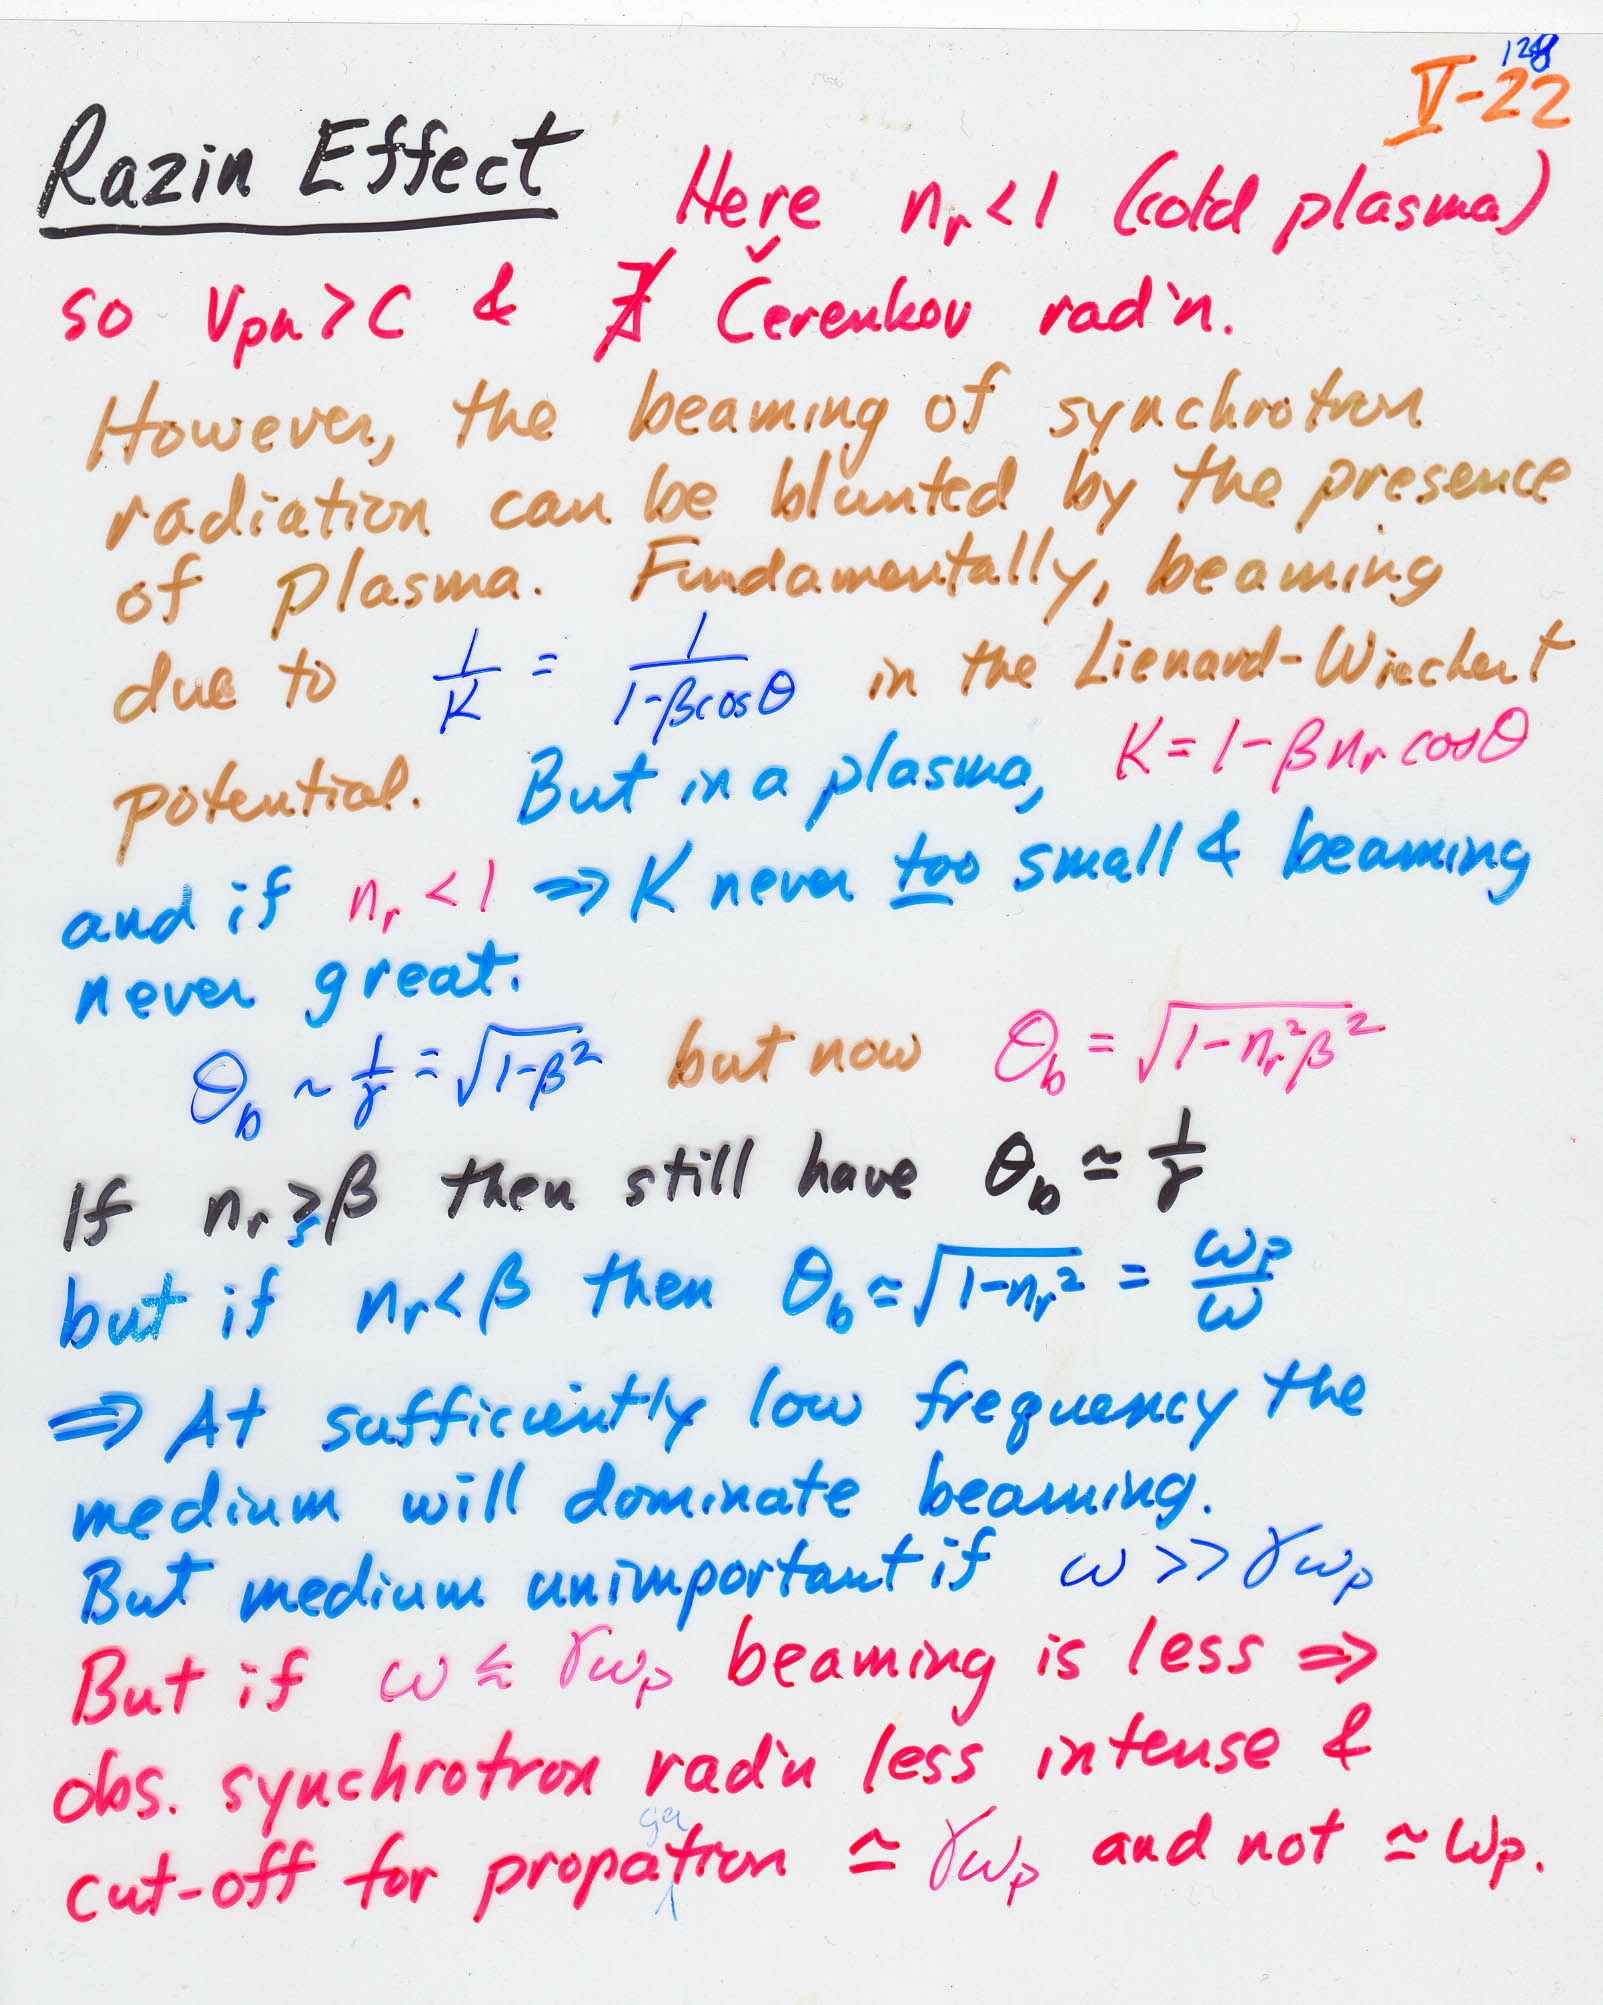 128
V-22
Razin Effect Here nᵣ < 1 (cold plasma)
so Vph > C & ∄ Čerenkov rad'n.
However, the beaming of synchrotron
radiation can be blunted by the presence
of plasma. Fundamentally, beaming
due to 1/K = 1/(1-βcosθ) in the Lienard-Wiechert
potential. But in a plasma, K = 1-βnᵣcosθ
and if nᵣ < 1 ⇒ K never too small & beaming
never great.
θb ~ 1/γ = √(1-β²) but now θb = √(1-nᵣ²β²)
If nᵣ ≳ β then still have θb ≃ 1/γ
but if nᵣ < β then θb ≃ √(1-nᵣ²) = ωp/ω
⇒ At sufficiently low frequency the
medium will dominate beaming.
But medium unimportant if ω >> γωp
But if ω ≲ γωp beaming is less ⇒
obs. synchrotron rad'n less intense &
cut-off for propagation ≃ γωp and not ≃ ωp.